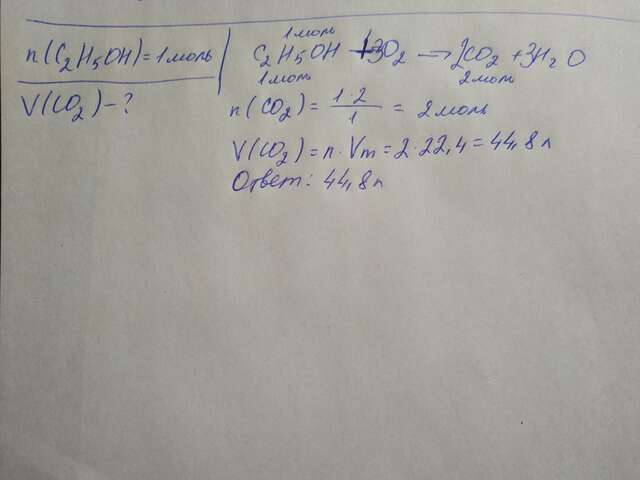 n(C₂H₅OH)=1моль
V(CO₂)-?
1моль
C₂H₅OH+3O₂→2CO₂+3H₂O
1моль 2моль
n(CO₂)=1·2/1=2моль
V(CO₂)=n·Vm=2·22,4=44,8л
Ответ: 44,8л